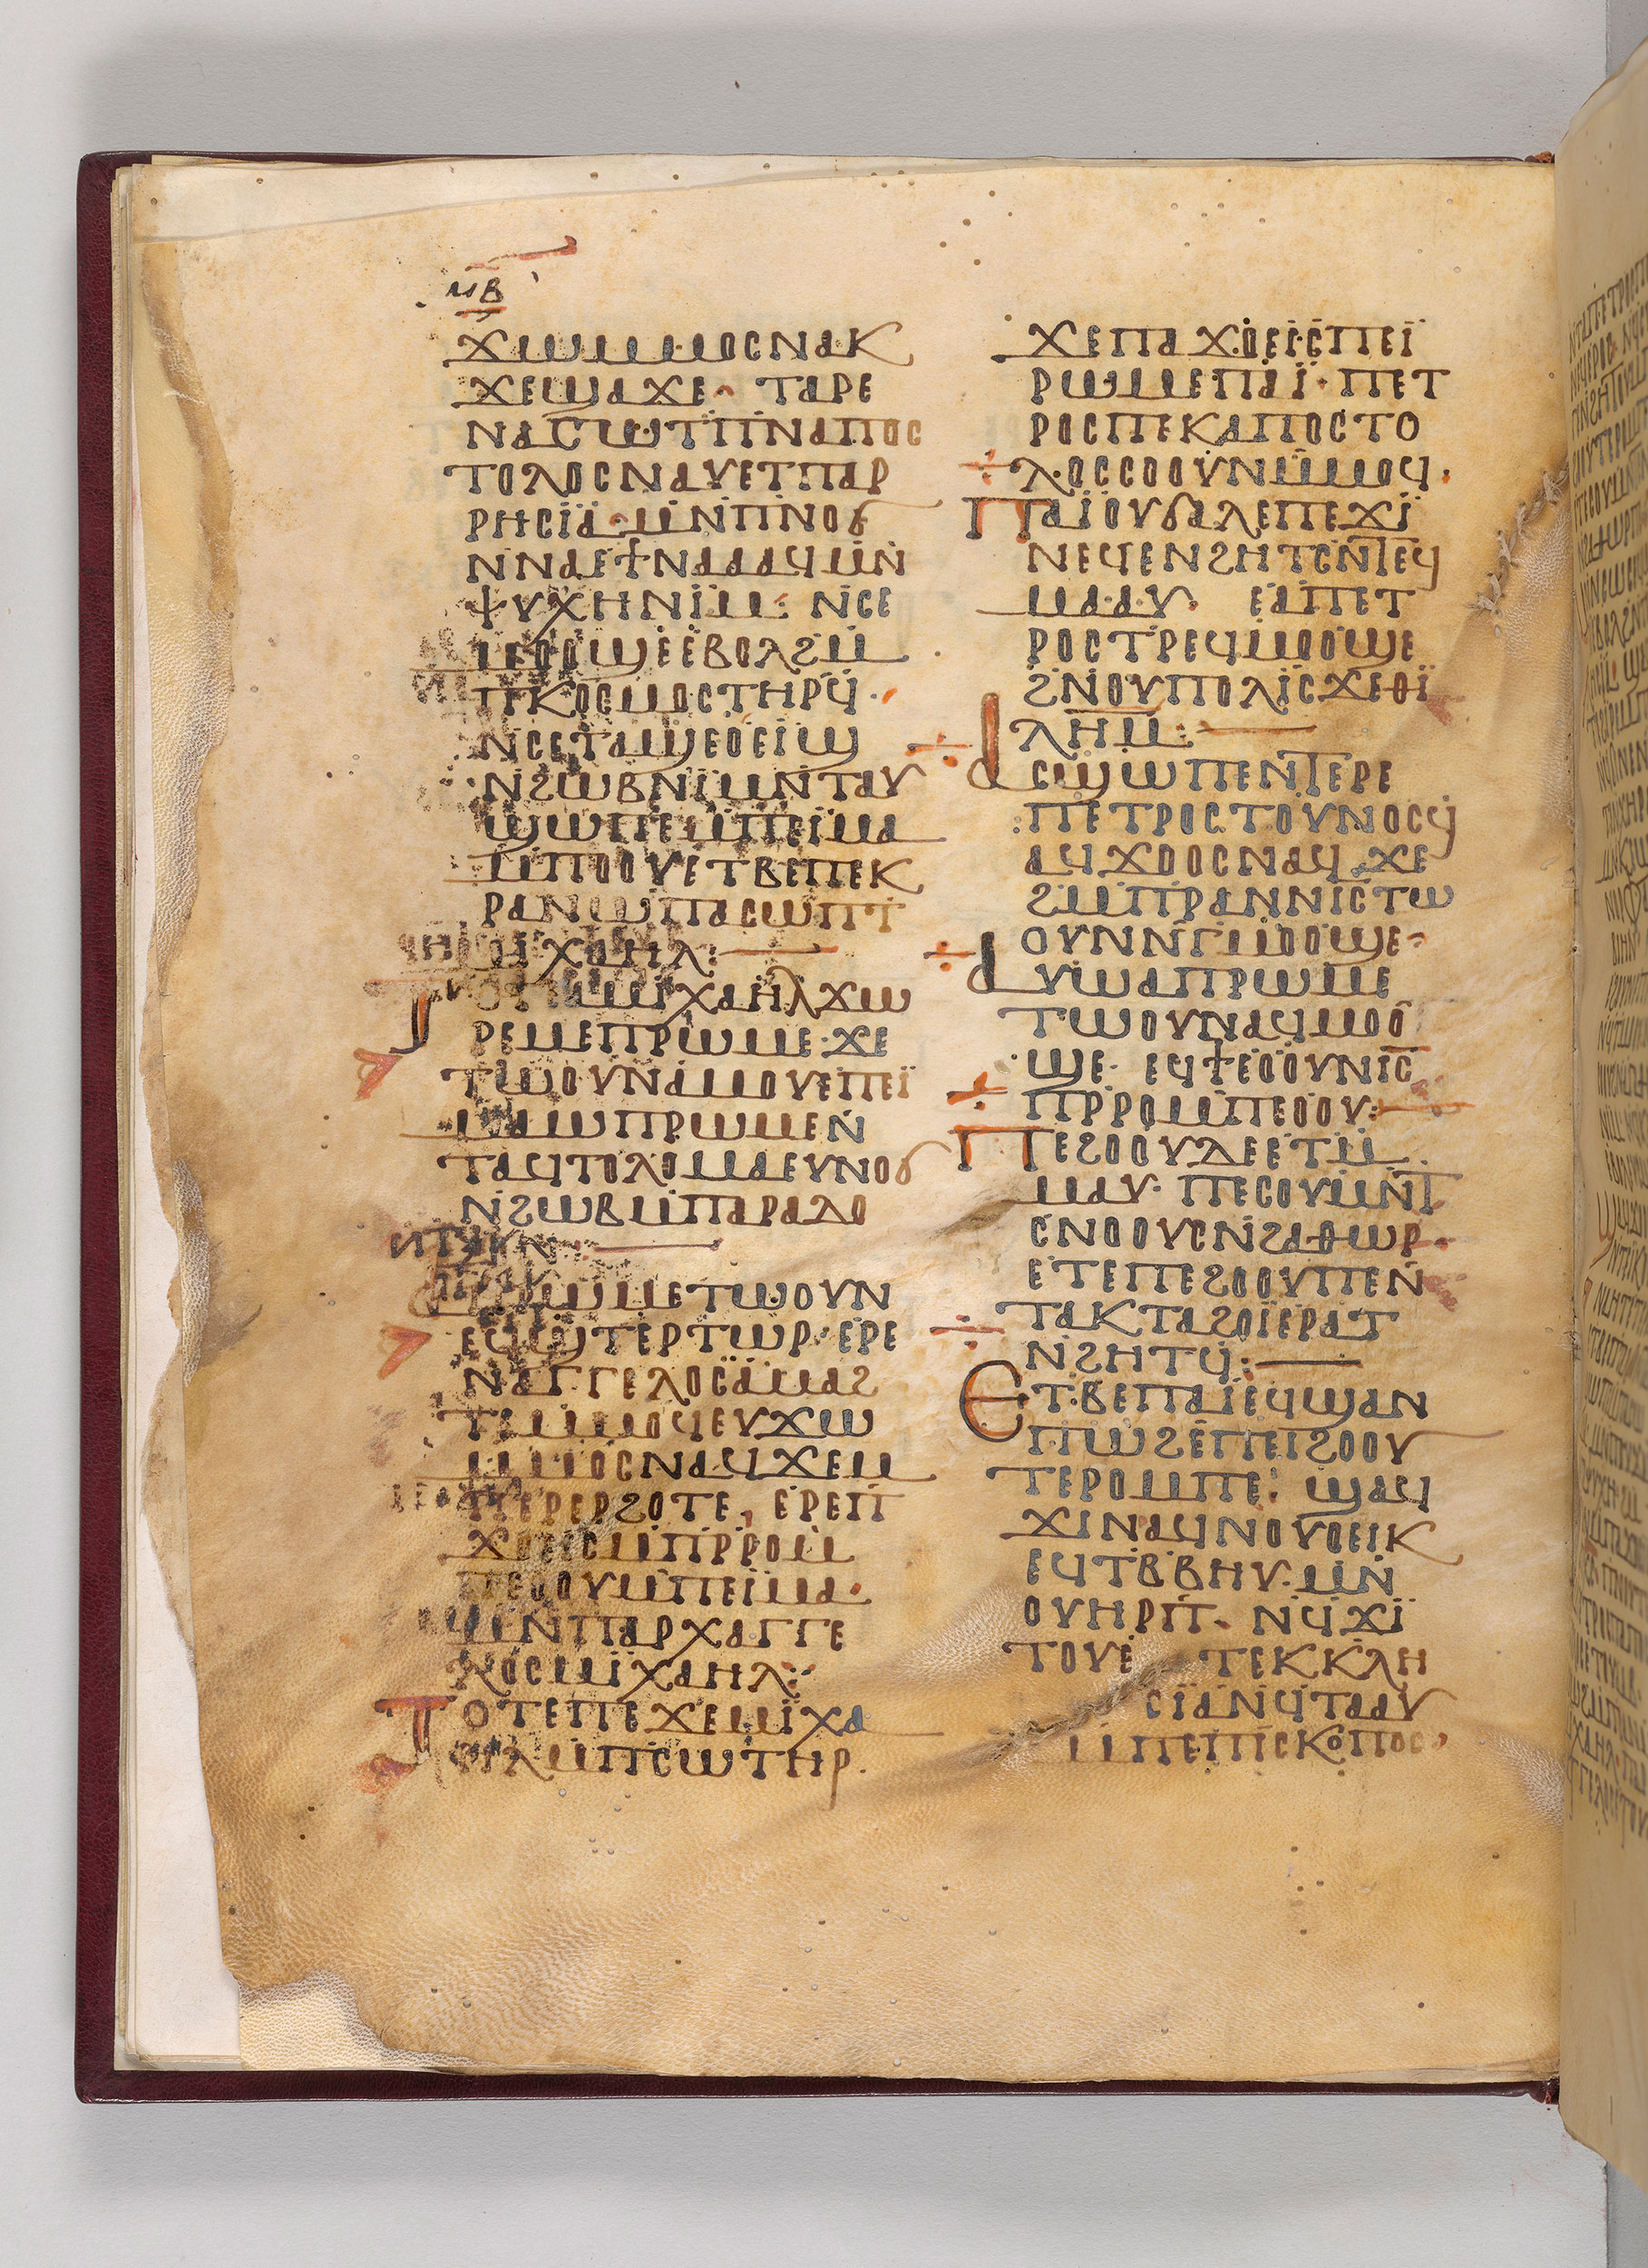 ⲙⲃ
ϫⲱⲙⲙⲟⲥⲛⲁⲕ
ϫⲉϣⲁϫⲉ ⲧⲁⲣⲉ
ⲛⲁⲥⲱⲧⲡⲛⲁⲡⲟⲥ
ⲧⲟⲗⲟⲥⲛⲁⲩⲉⲧⲡⲁⲣ
ⲣⲏⲥⲓⲁ·ⲙⲛⲡⲛⲟϭ
ⲛⲛⲁⲉϯⲛⲁⲁⲁϥⲙⲛ
ⲯⲩⲭⲏⲛⲓⲙ: ⲛⲥⲉ
ⲙⲟⲟϣⲉⲉⲃⲟⲗϩⲙ
ⲡⲕⲟⲥⲙⲟⲥⲧⲏⲣϥ·
ⲛⲥⲉⲧⲁϣⲉⲟⲉⲓϣ
ⲛϩⲱⲃⲛⲓⲙⲛⲧⲁⲩ
ϣⲱⲡⲉⲙⲡⲉⲓⲙⲁ
ⲙⲡⲟⲟⲩⲉⲧⲃⲉⲡⲉⲕ
ⲣⲁⲛⲱⲡⲁⲥⲱⲡⲧ
ⲙⲓⲭⲁⲏⲗ:
ⲧⲟⲧⲉⲁⲙⲓⲭⲁⲏⲗϫⲱ
ⲣⲉⲙⲉⲡⲣⲱⲙⲉ·ϫⲉ
ⲧⲱⲟⲩⲛⲁⲙⲟⲩⲉⲡⲉⲓ
ⲙⲁⲱⲡⲣⲱⲙⲉⲛ
ⲧⲁϥⲧⲟⲗⲟⲙⲁⲉⲩⲛⲟϭ
ⲛϩⲱⲃⲙⲡⲁⲣⲁⲇⲟ
ⲁⲡⲣⲱⲙⲉⲧⲱⲟⲩⲛ
ⲉϥϣⲧⲉⲣⲧⲱⲣ·ⲉⲣⲉ
ⲛⲁⲅⲅⲉⲗⲟⲥⲁⲙⲁϩ
ⲧⲉⲙⲙⲟϥⲉⲩϫⲱ
ⲙⲙⲟⲥⲛⲁϥϫⲉⲙ
ⲡⲉⲣⲉⲣϩⲟⲧⲉ, ⲉⲣⲉⲡ
ϫⲟⲉⲓⲥⲙⲡⲣⲣⲟⲙ
ⲡⲉⲟⲟⲩⲙⲡⲉⲓⲙⲁ·
ⲙⲛⲡⲁⲣⲭⲁⲅⲅⲉ
ⲗⲟⲥⲙⲓⲭⲁⲏⲗ:
ⲧⲟⲧⲉⲡⲉϫⲉⲙⲓⲭⲁ
ⲏⲗⲙⲡⲥⲱⲧⲏⲣ.
ϫⲉⲡⲁϫⲟⲉⲓⲥⲡⲉⲓ
ⲣⲱⲙⲉⲡⲁⲓ·ⲡⲉⲧ
ⲣⲟⲥⲡⲉⲕⲁⲡⲟⲥⲧⲟ
ⲗⲟⲥⲥⲟⲟⲩⲛⲙⲙⲟϥ·
ⲡⲁⲓⲟⲩϭⲁⲗⲉⲡⲉϫⲓ
ⲛⲉϥⲉⲛϩⲏⲧⲥⲛⲧⲉϥ
ⲙⲁⲁⲩ· ⲉⲁⲡⲉⲧ
ⲣⲟⲥⲧⲣⲉϥⲙⲟⲟϣⲉ
ϩⲛⲟⲩⲡⲟⲗⲓⲥϫⲉⲑⲓ
ⲗⲏⲙ:
ⲁⲥϣⲱⲡⲉⲛⲧⲉⲣⲉ
ⲡⲉⲧⲣⲟⲥⲧⲟⲩⲛⲟⲥϥ
ⲁϥϫⲟⲟⲥⲛⲁϥϫⲉ
ϩⲙⲡⲣⲁⲛⲛⲓⲥⲧⲱ
ⲟⲩⲛⲛⲅⲙⲟⲟϣⲉ·
ⲁⲩⲱⲁⲡⲣⲱⲙⲉ
ⲧⲱⲟⲩⲛⲁϥⲙⲟⲟ
ϣⲉ· ⲉϥϯⲉⲟⲟⲩⲛⲓⲥ
ⲡⲣⲣⲟⲙⲡⲉⲟⲟⲩ:
ⲡⲉϩⲟⲟⲩⲇⲉⲉⲧⲙ
ⲙⲁⲩ· ⲡⲉⲥⲟⲩⲙⲛⲧ
ⲥⲛⲟⲟⲩⲥⲛϩⲁⲑⲱⲣ·
ⲉⲧⲉⲡⲉϩⲟⲟⲩⲡⲉⲛ
ⲧⲁⲕⲧⲁϩⲟⲓⲉⲣⲁⲧ
ⲛϩⲏⲧϥ:
ⲉⲧⲃⲉⲡⲁⲓⲉϥϣⲁⲛ
ⲡⲱϩⲉⲡⲉⲓϩⲟⲟⲩ
ⲧⲉⲣⲟⲙⲡⲉ: ϣⲁϥ
ϫⲓⲛⲁϥⲛⲟⲩⲟⲉⲓⲕ
ⲉϥⲧⲃⲃⲏⲩ·ⲙⲛ
ⲟⲩⲏⲣⲡ· ⲛϥϫⲓ
ⲧⲟⲩⲉ ⲧⲉⲕⲕⲗⲏ
ⲥⲓⲁⲛϥⲧⲁⲁⲩ
ⲙⲡⲉⲡⲓⲥⲕⲟⲡⲟⲥ